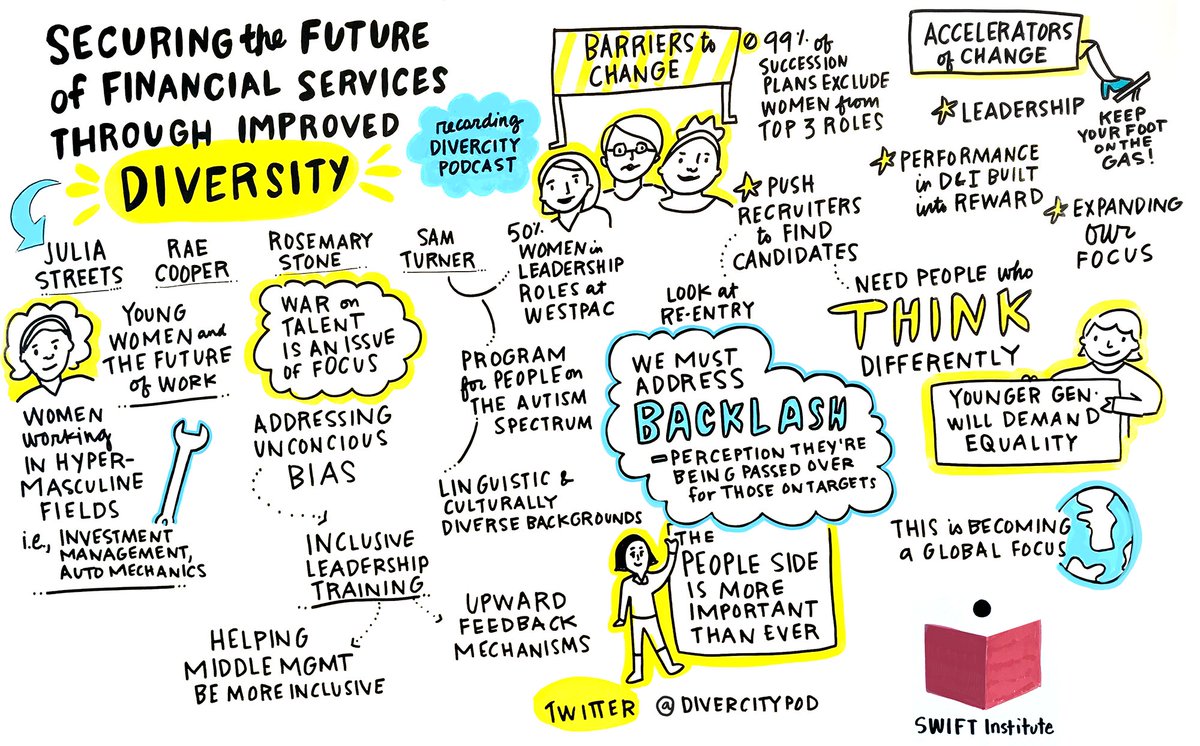 SECURING the FUTURE
of FINANCIAL SERVICES
THROUGH IMPROVED
DIVERSITY
recording
DIVERCITY
PODCAST
JULIA
STREETS
RAE
COOPER
ROSEMARY
STONE
SAM
TURNER
YOUNG
WOMEN and
THE FUTURE
of WORK
WOMEN
working
IN HYPER-
MASCULINE
FIELDS
i.e., INVESTMENT
MANAGEMENT,
AUTO MECHANICS
WAR on
TALENT
IS AN ISSUE
OF FOCUS
ADDRESSING
UNCONCIOUS
BIAS
INCLUSIVE
LEADERSHIP
TRAINING
HELPING
MIDDLE MGMT
BE MORE INCLUSIVE
UPWARD
FEEDBACK
MECHANISMS
50%
WOMEN in
LEADERSHIP
ROLES at
WESTPAC
PROGRAM
for PEOPLE on
THE AUTISM
SPECTRUM
LINGUISTIC &
CULTURALLY
DIVERSE BACKGROUNDS
BARRIERS to
CHANGE
99% of
SUCCESSION
PLANS EXCLUDE
WOMEN from
TOP 3 ROLES
PUSH
RECRUITERS
to FIND
CANDIDATES
LOOK at
RE-ENTRY
NEED PEOPLE who
THINK
DIFFERENTLY
WE MUST
ADDRESS
BACKLASH
- PERCEPTION THEY'RE
BEING PASSED OVER
for THOSE ON TARGETS
THE
PEOPLE SIDE
IS MORE
IMPORTANT
THAN EVER
ACCELERATORS
of CHANGE
KEEP
YOUR FOOT
ON THE
GAS!
LEADERSHIP
PERFORMANCE
in D&I BUILT
into REWARD
EXPANDING
our
FOCUS
YOUNGER GEN.
WILL DEMAND
EQUALITY
THIS is BECOMING
a GLOBAL FOCUS
TWITTER @DIVERCITYPOD
SWIFT Institute